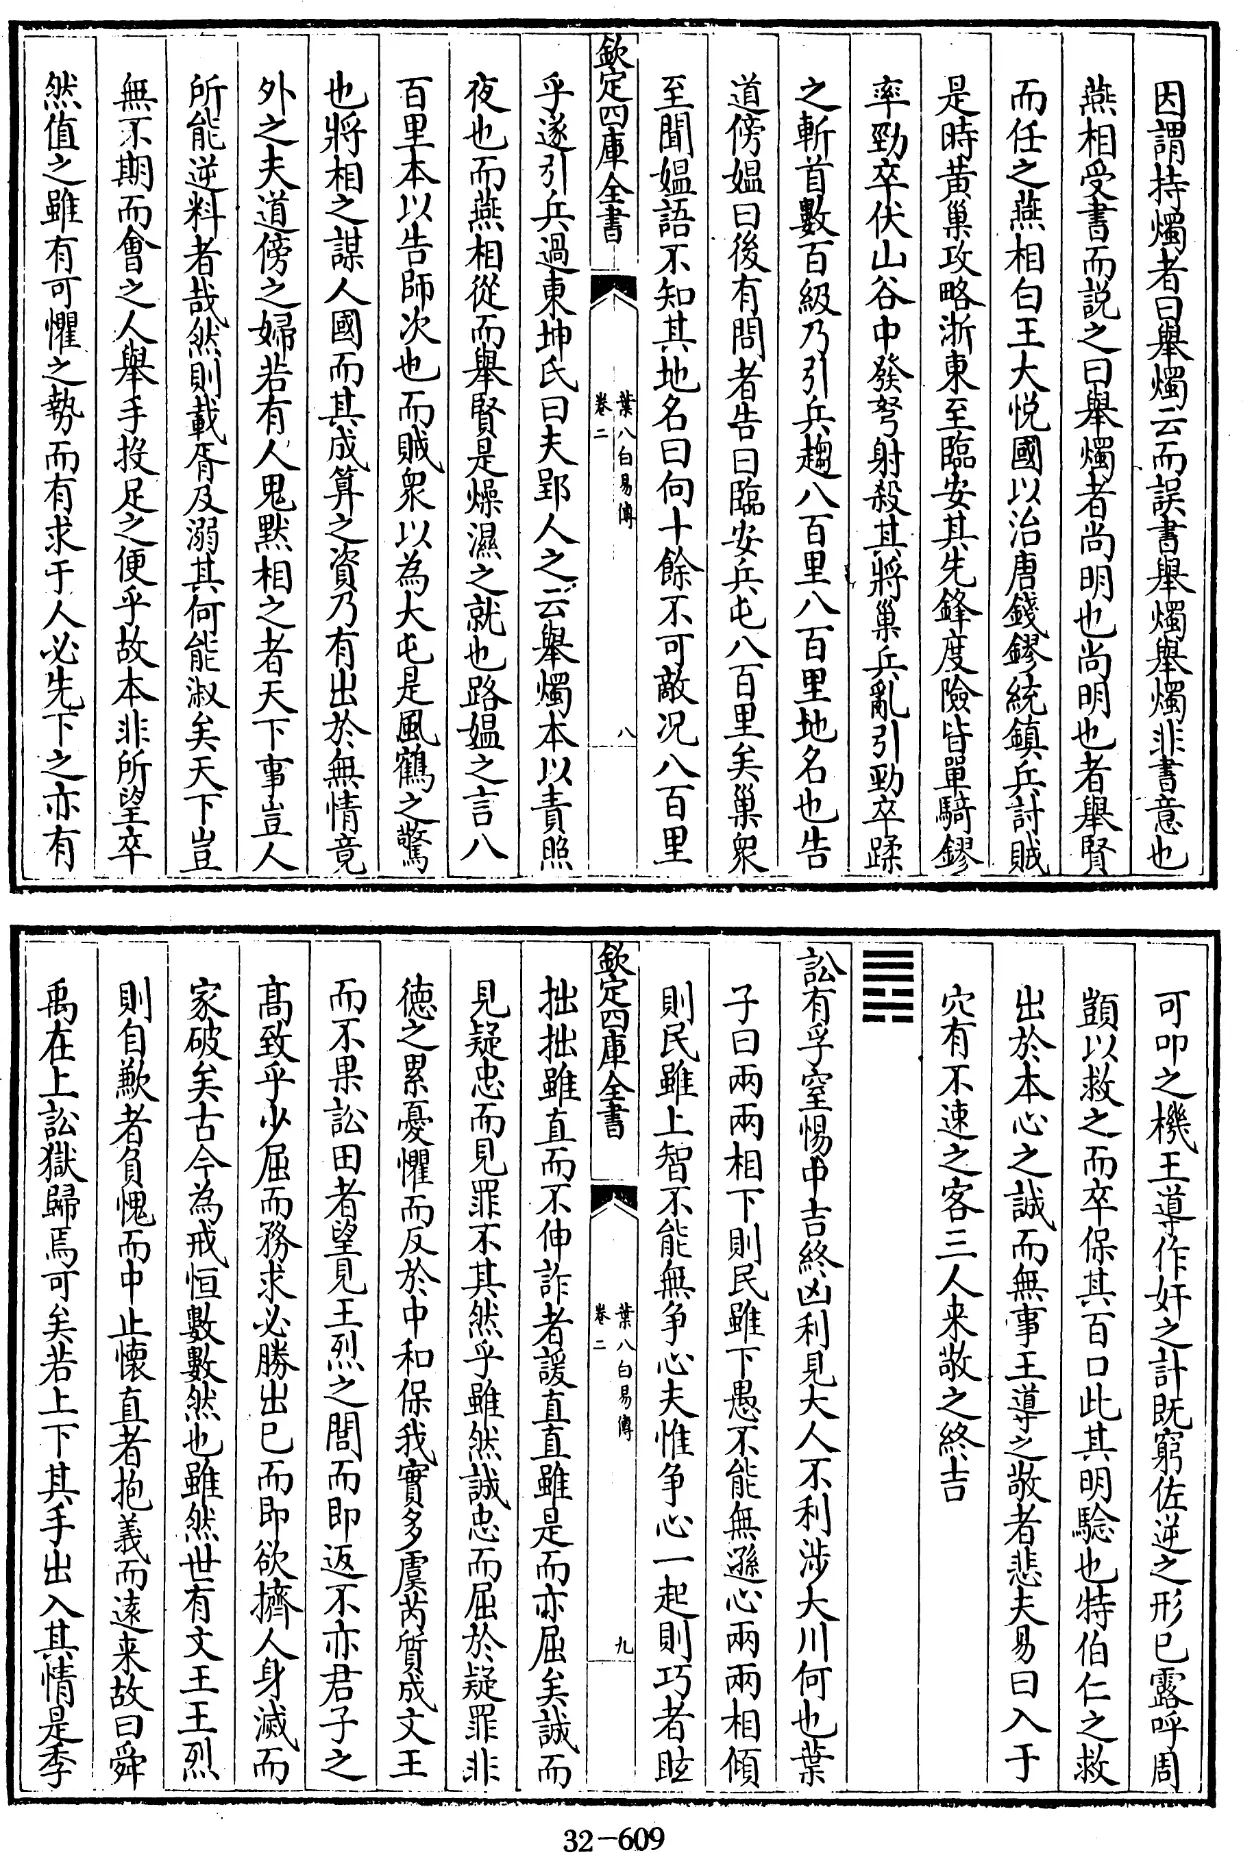 因謂持燭者曰舉燭云而誤書舉燭舉燭非書意也
燕相受書而説之曰舉燭者尚明也尚明也者舉賢
而任之燕相白王大悦國以治唐錢鏐統鎮兵討賊
是時黄巢攻略浙東至臨安其先鋒度險皆單騎鏐
率勁卒伏山谷中發弩射殺其將巢兵亂引勁卒蹂
之斬首數百級乃引兵趨八百里八百里地名也告
道傍媪曰後有問者告曰臨安兵屯八百里矣巢衆
至聞媪語不知其地名曰向十餘不可敵况八百里
欽定四庫全書
葉八白易傳
卷二
八
乎遂引兵過東坤氏曰夫郢人之云舉燭本以責照
夜也而燕相從而舉賢是燥濕之就也路媪之言八
百里本以告師次也而賊衆以為大屯是風鶴之驚
也將相之謀人國而其成算之資乃有出於無情竟
外之夫道傍之婦若有人鬼默相之者天下事豈人
所能逆料者哉然則載胥及溺其何能淑矣天下豈
無不期而會之人舉手投足之便乎故本非所望卒
然值之雖有可懼之勢而有求于人必先下之亦有
可叩之機王導作奸之計既窮佐逆之形已露呼周
顗以救之而卒保其百口此其明驗也特伯仁之救
出於本心之誠而無事王導之敬者悲夫易曰入于
穴有不速之客三人来敬之終吉
訟有孚窒惕中吉終凶利見大人不利涉大川何也葉
子曰兩兩相下則民雖下愚不能無遜心兩兩相傾
則民雖上智不能無争心夫惟争心一起則巧者眩
欽定四庫全書
葉八白易傳
卷二
九
拙拙雖直而不伸詐者諼直直雖是而亦屈矣誠而
見疑忠而見罪不其然乎雖然誠忠而屈於疑罪非
徳之累憂懼而反於中和保我實多虞芮質成文王
而不果訟田者望見王烈之閭而即返不亦君子之
髙致乎少屈而務求必勝出已而即欲擠人身滅而
家破矣古今為戒恒數數然也雖然世有文王王烈
則自歉者負愧而中止懷直者抱義而遠来故曰舜
禹在上訟獄歸焉可矣若上下其手出入其情是季
32-609